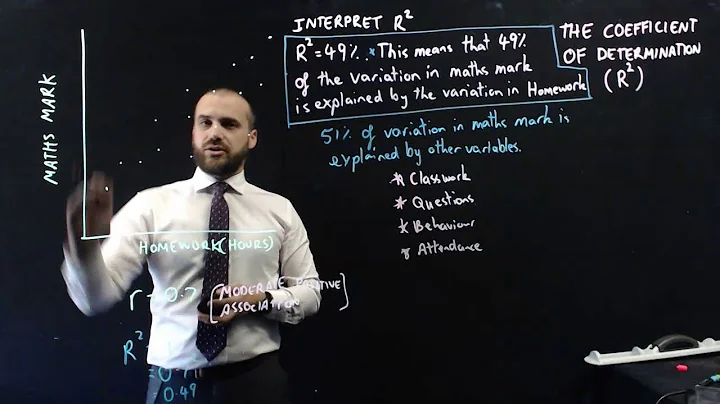 INTERPRET R²
R² = 49% * This means that 49%
of the variation in maths mark
is explained by the variation in Homework
THE COEFFICIENT
OF DETERMINATION
(R²)
51% of variation in maths mark is
explained by other variables.
* Classwork
* Questions
* Behaviour
* Attendance
MATHS MARK
HOMEWORK (HOURS)
r = 0.7
[MODERATE POSITIVE
ASSOCIATION]
R²
= 0.49